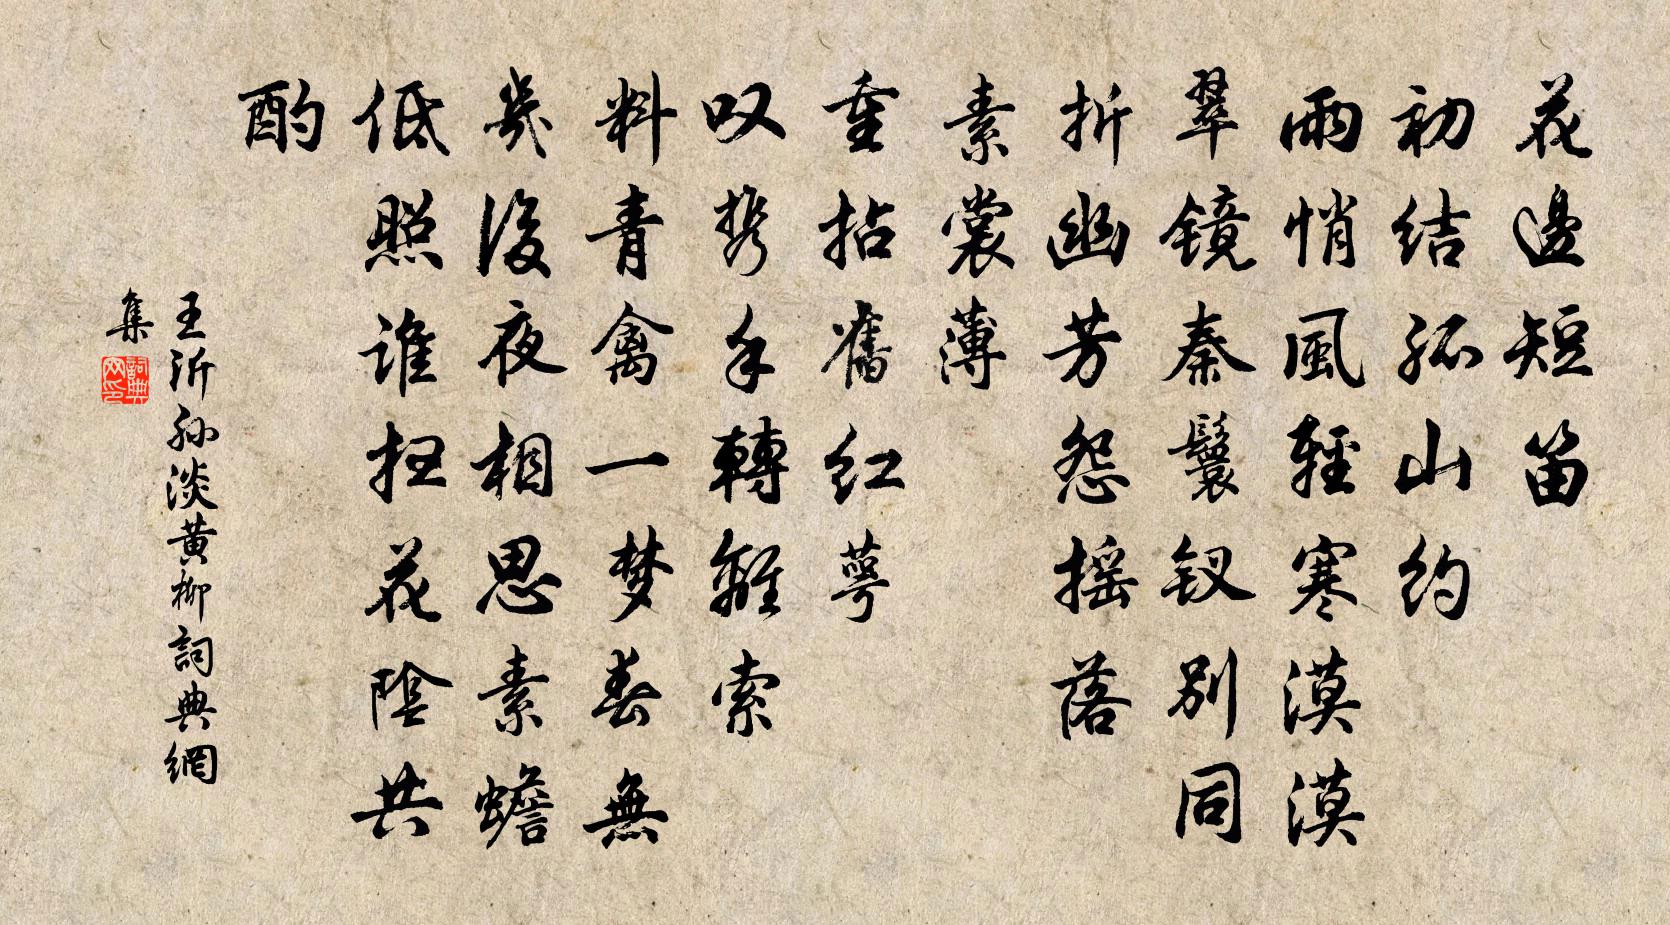 花邊短笛
初结孤山约
雨悄風輕寒漠漠
翠镜秦鬟钗别同
折幽芳怨摇落
素裳薄
重拈舊红萼
叹携手轉離索
料青禽一梦春無
幾後夜相思素蟾
低照谁扫花陰共
酌
王沂孙淡黄柳詞典網
集
詞典網印